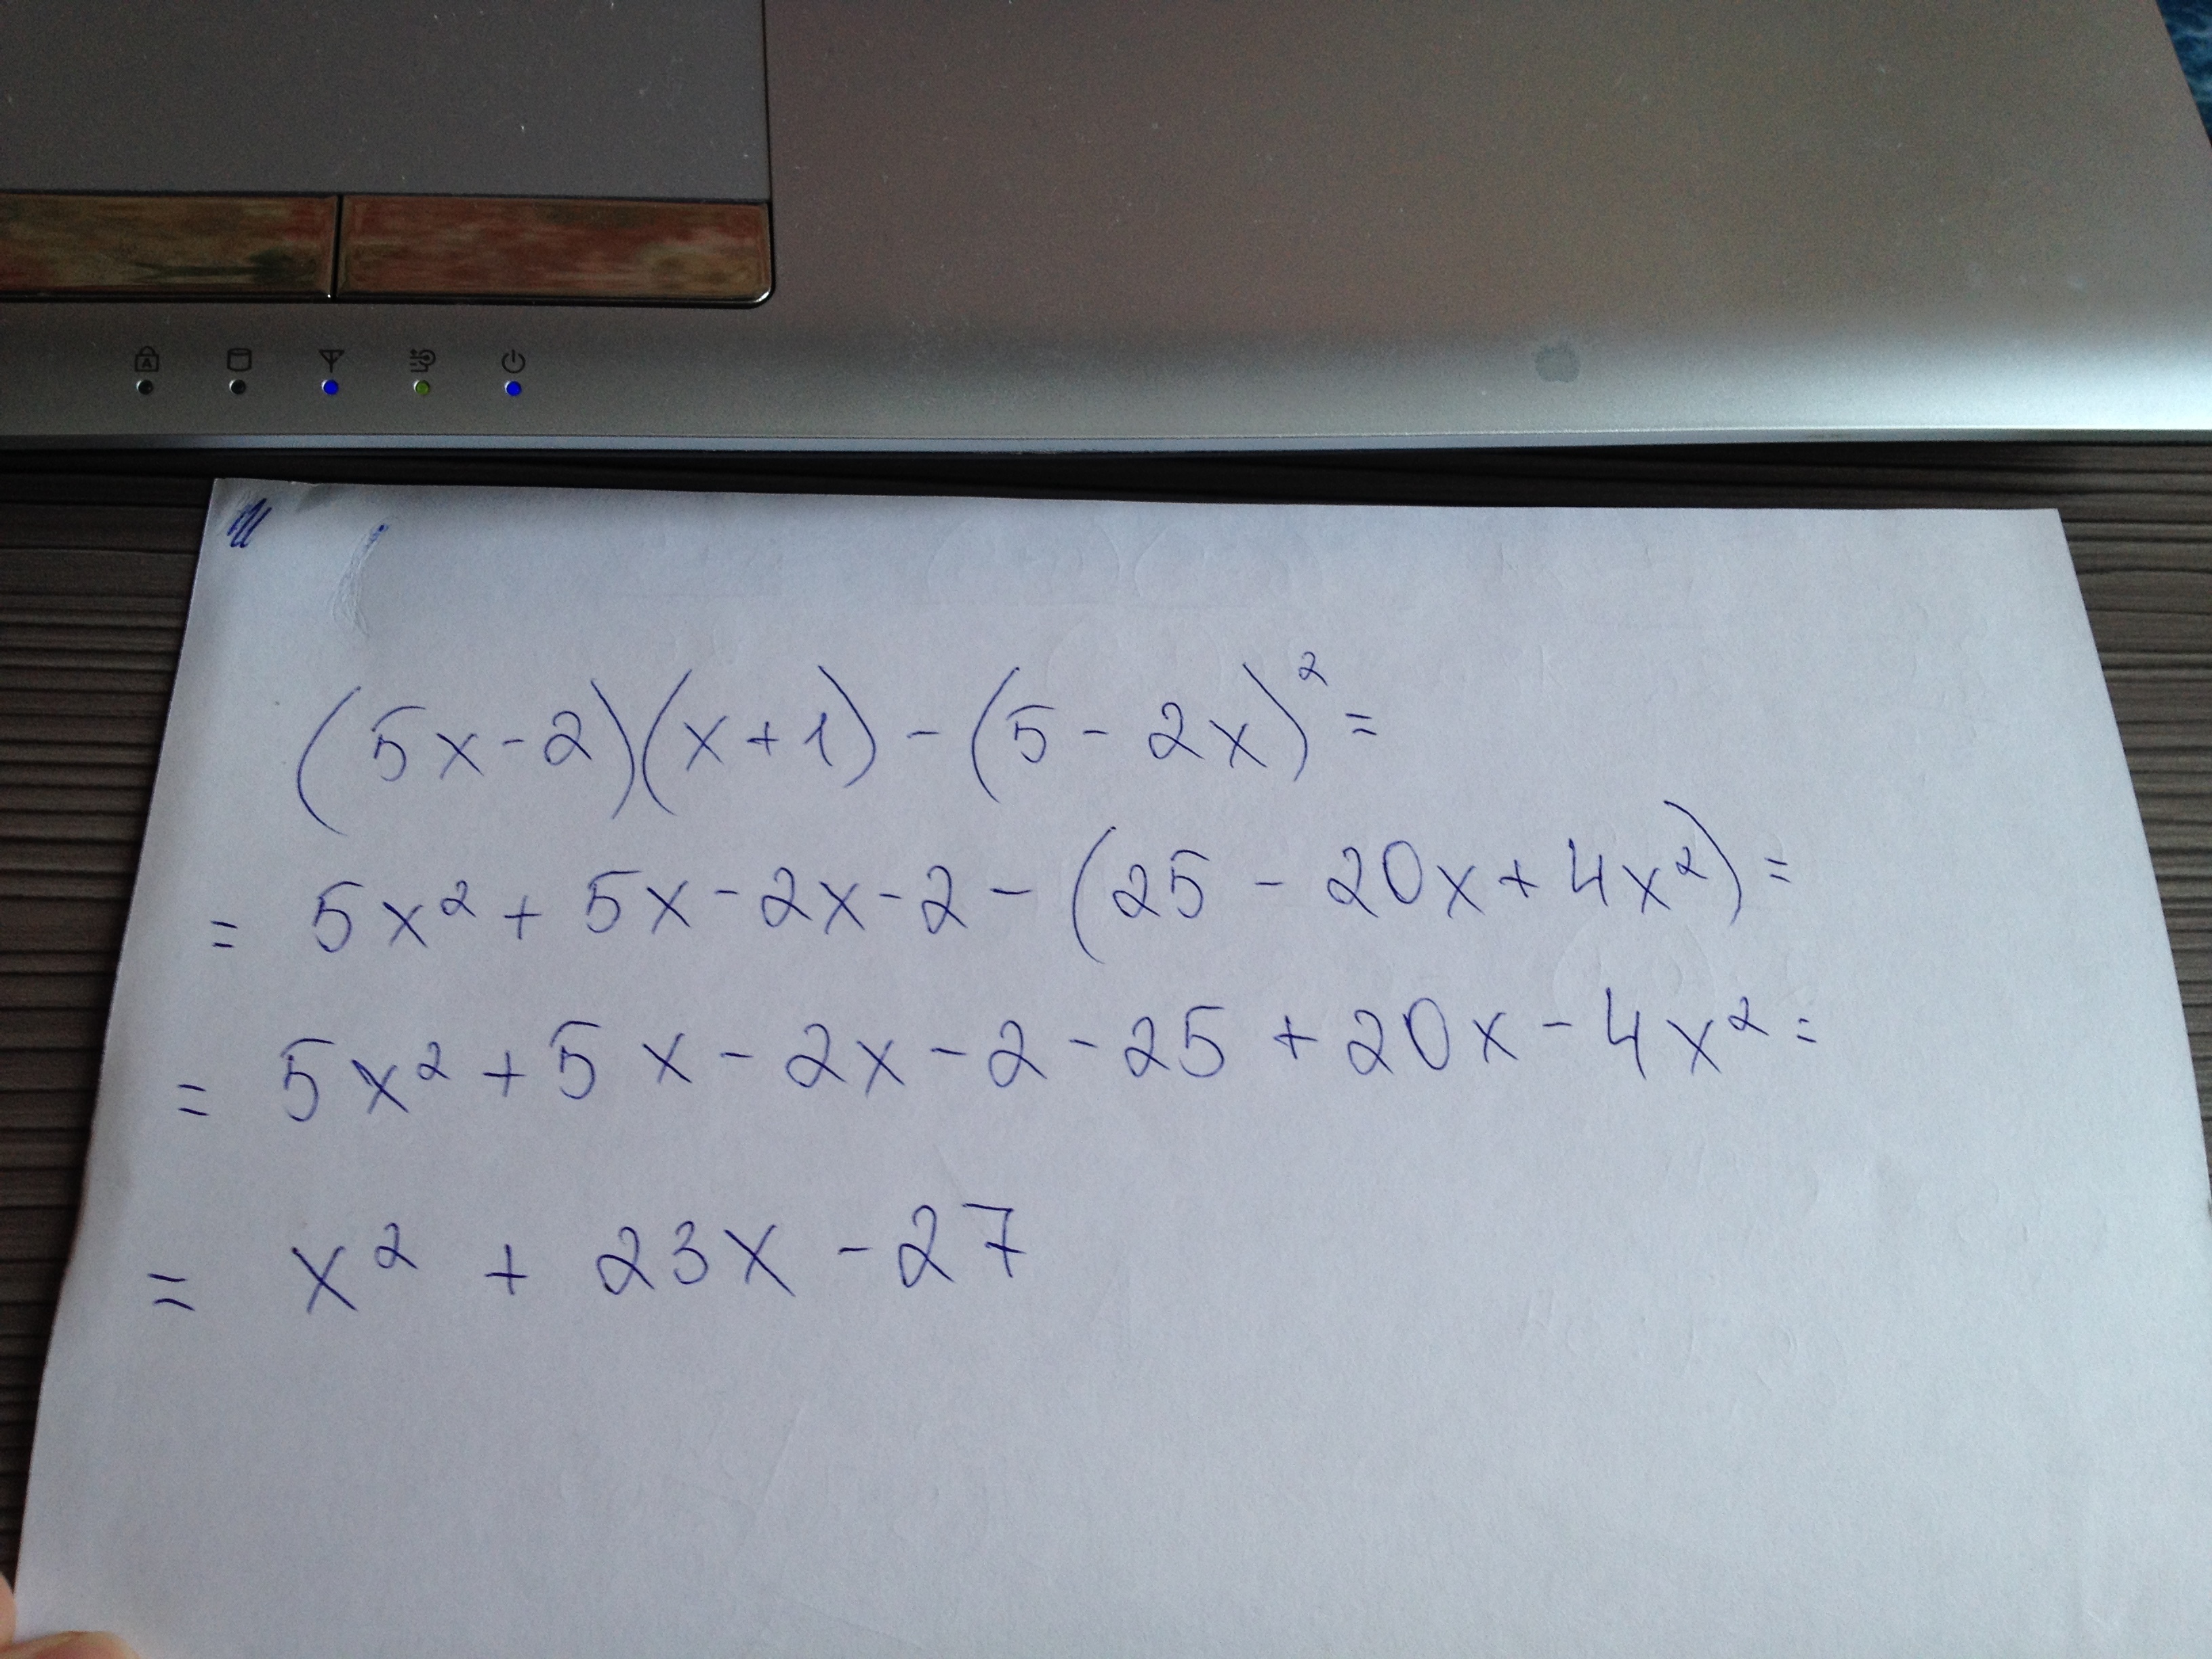 (5x-2)(x+1)-(5-2x)²=
= 5x²+5x-2x-2-(25-20x+4x²)=
= 5x²+5x-2x-2-25+20x-4x²=
= x²+23x-27